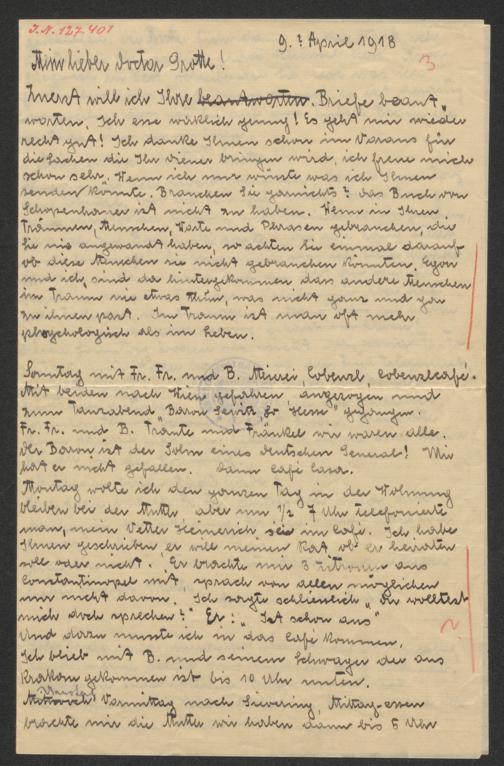 I.N. 127.401
9. April 1918
3
Mein lieber Doctor Grotte!
Zuerst will ich Ihre beantworten. Briefe beant„
worten. Ich esse wirklich genug! Es geht mir wieder
recht gut! Ich danke Ihnen schon im Voraus für
die Sachen die Ihr Diener bringen wird, ich freue mich
schon sehr. Wenn ich nur wüste was ich Ihnen
senden könnte. Brauchen Sie garnichts? Das Buch von
Schopenhauer ist nicht zu haben. Wenn in Ihren
Träumen, Menschen, Worte und Phrasen gebrauchen, die
Sie nie angewandt haben, so achten Sie einmal darauf
ob diese Menschen sie nicht gebrauchen könnten. Egon
und ich, sind da hintergekommen dass andere Menschen
im Traum nie etwas thun, was nicht ganz und gar
zu ihnen past. Im Traum ist man oft mehr
psychologisch als im Leben.
Sonntag mit Fr. Fr. und B. Meierei, Cobenzl, Cobenzlcafé.
Mit beiden nach Wien gefahren, angezogen und
zum Tanzabend „Baron Hesse" gegangen.
Fr. Fr. und B. Traute und Fränkel wir waren alle.
Der Baron ist der Sohn eines deutschen General! Mir
hat er nicht gefallen. Dann Café
Montag wolte ich den ganzen Tag in der Wohnung
bleiben bei der Mutter aber um ½ 7 Uhr telefonierte
man, mein Vetter Heinerich sei im Café. Ich habe
Ihnen geschrieben er will meinen Rat ob er heiraten
soll oder nicht. Er brachte mir 3 Zitronen aus
Constantinopel mit, sprach von allen möglichen
nur nicht davon. Ich sagte schliesslich „Du wolltest
mich doch sprechen?" Er: „Ist schon aus"
Und dazu musste ich in das Café kommen.
Ich blieb mit B. und seinem Schwager der aus
Krakau gekommen ist bis 10 Uhr unten.
2
Dienstag
Mittwoch Vormittag nach Sievering, Mittag-essen
brachte mir die Mutter wir haben dann bis 5 Uhr